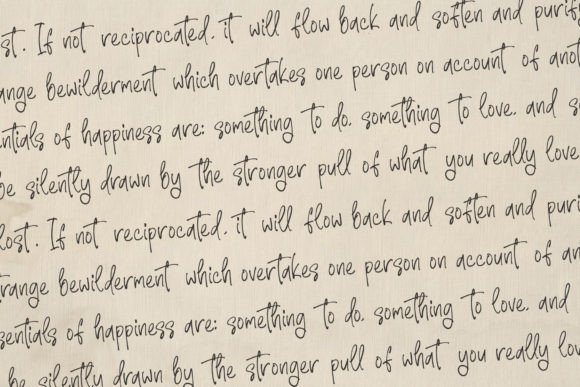 st. If not reciprocated, it will flow back and soften and purif
ange bewilderment which overtakes one person on account of anot
ntials of happiness are: something to do, something to love, and s
be silently drawn by the stronger pull of what you really love
lost. If not reciprocated, it will flow back and soften and puri
trange bewilderment which overtakes one person on account of an
sentials of happiness are: something to do, something to love, and
be silently drawn by the stronger pull of what you really lov